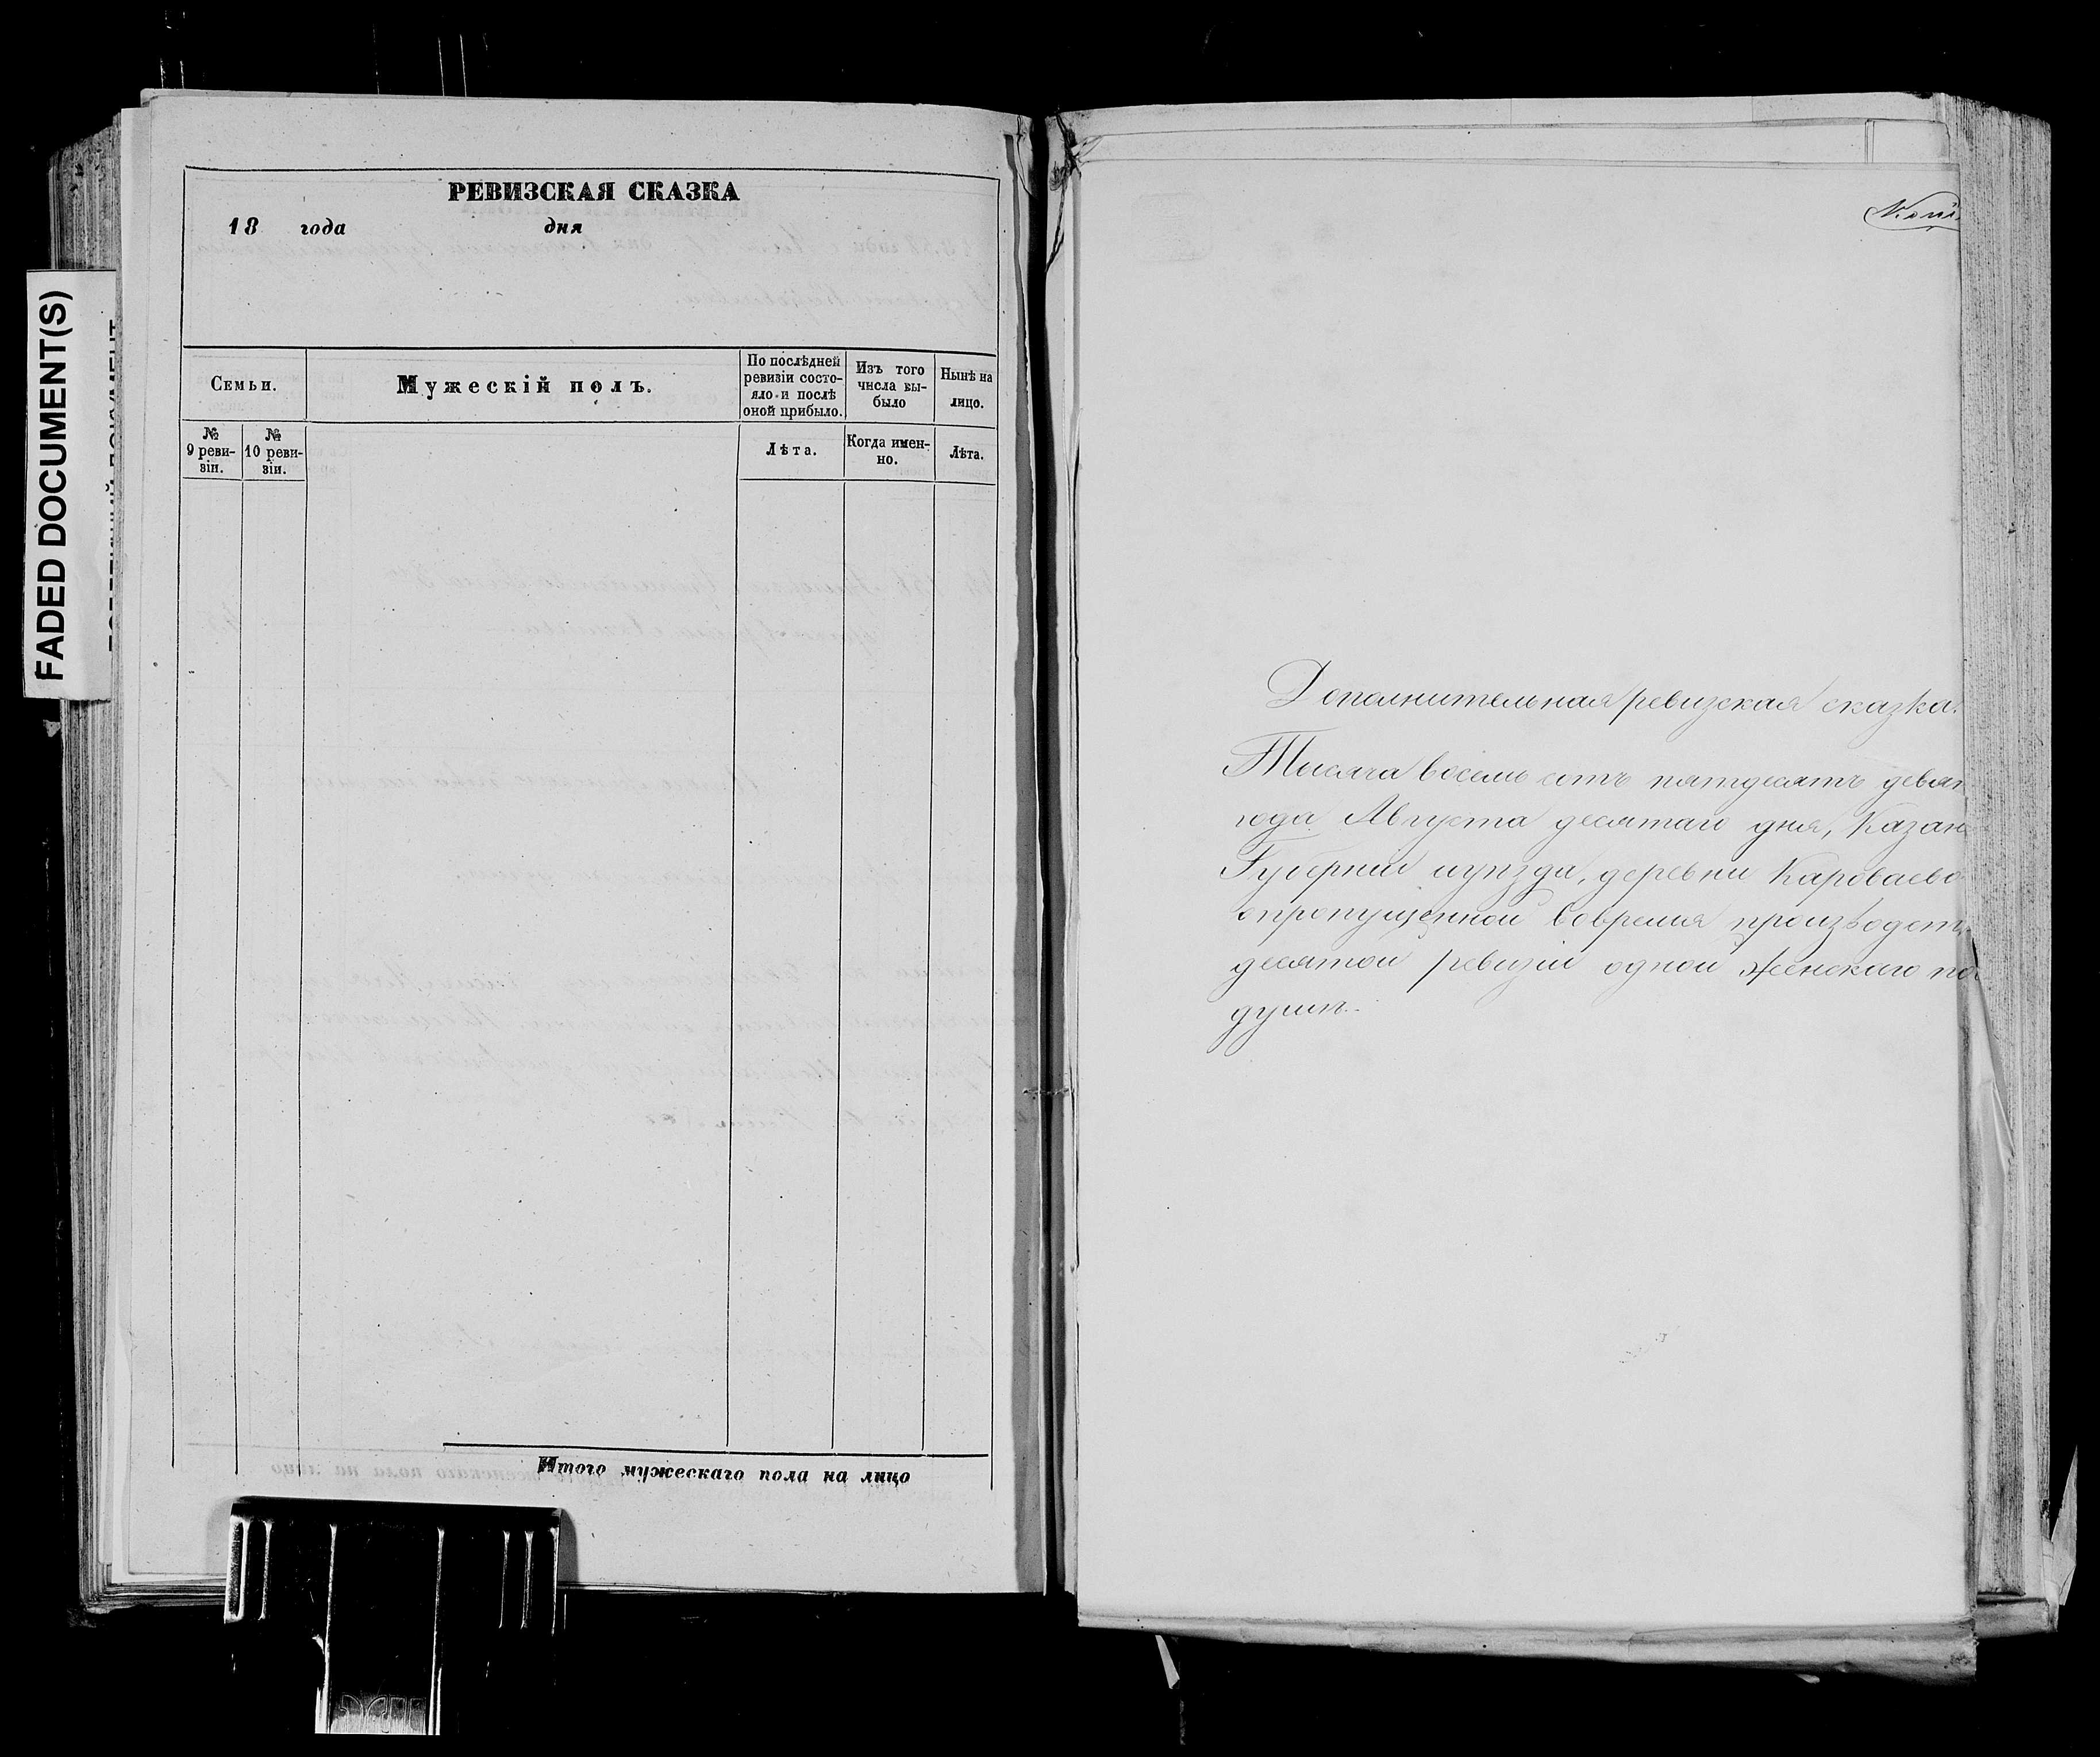 FADED DOCUMENT(S)
РЕВИЗСКАЯ СКАЗКА
18 года дня
Семьи.
Мужескій полъ.
По послѣдней ревизіи состо-
яло и послѣ оной прибыло.
Изъ того числа вы-
было
Нынѣ на лицо.
№ 9 реви-
зіи.
№ 10 реви-
зіи.
Лѣта.
Когда имен-
но.
Лѣта.
Итого мужескаго пола на лицо
Копі
Дополнительная ревизская сказка.
Тысяча восемь сотъ пятдесятъ девят
года Августа десятаго дня, Казан
Губерніи иуѣзда, деревни Караваево
опропущенной вовремя производст
десятой ревизіи одной женскаго по
душѣ.